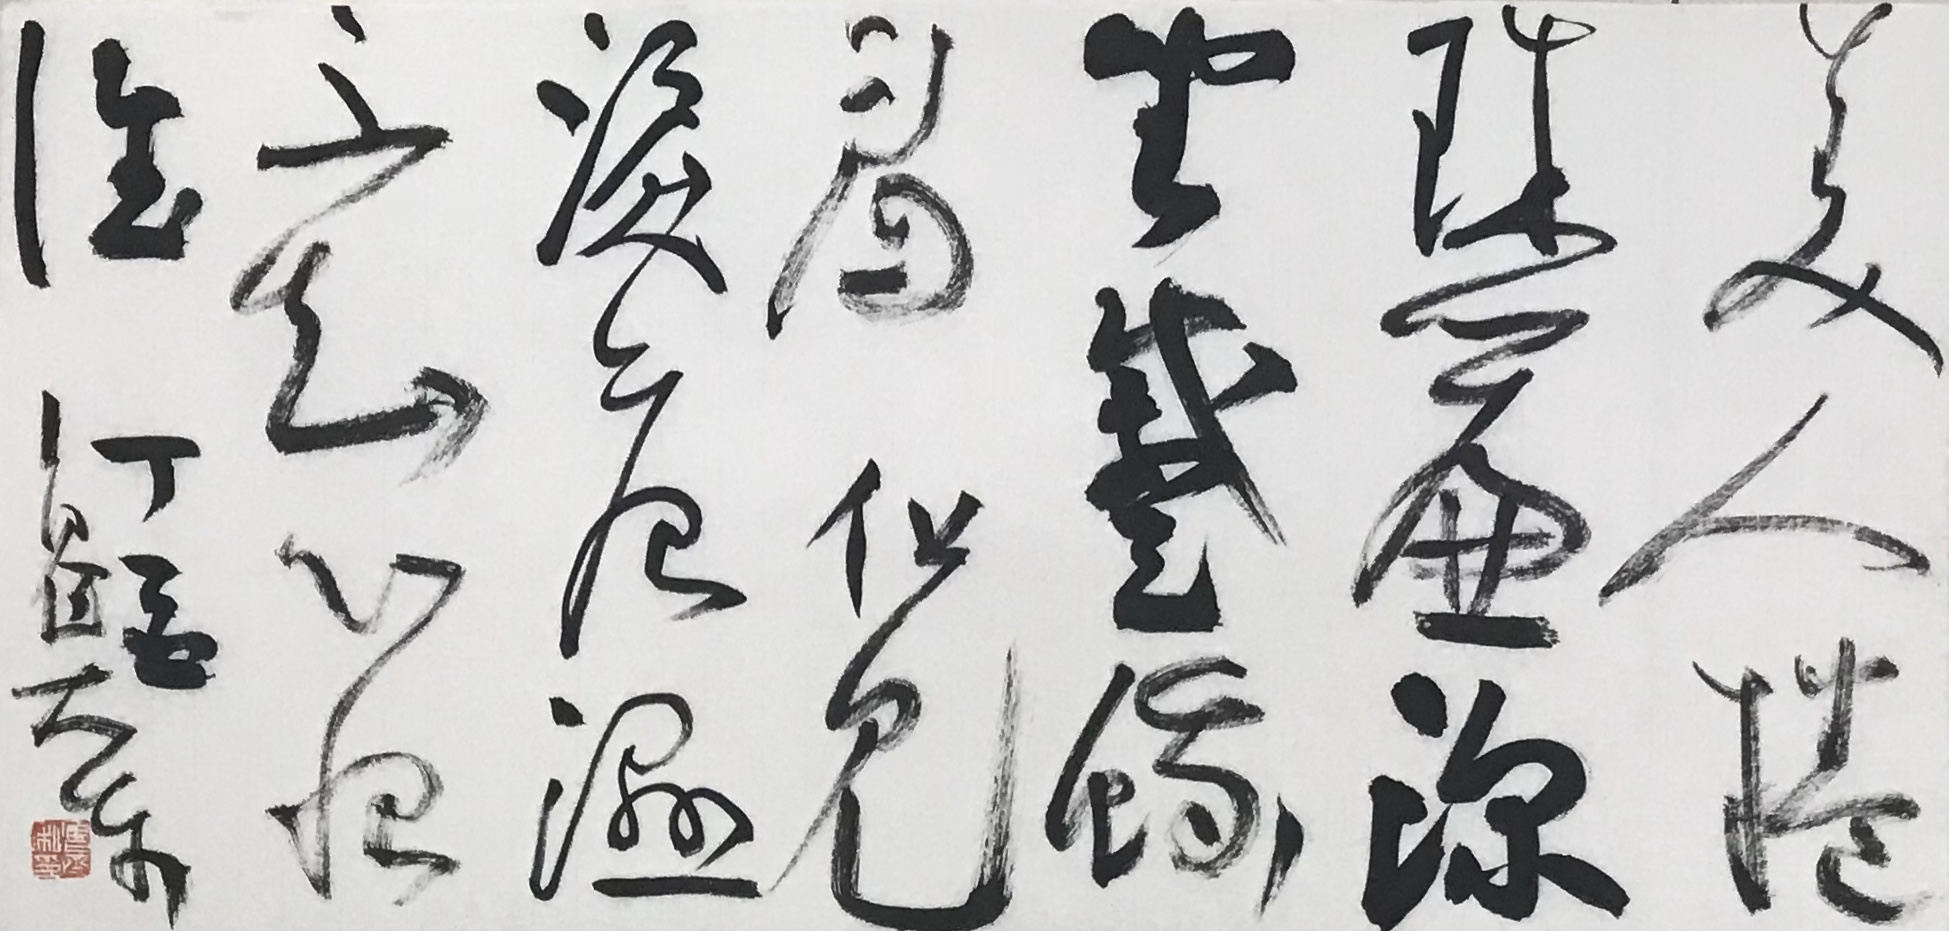 美人捲
珠簾深
坐蹙蛾
眉但見
淚痕濕
不知心恨
誰